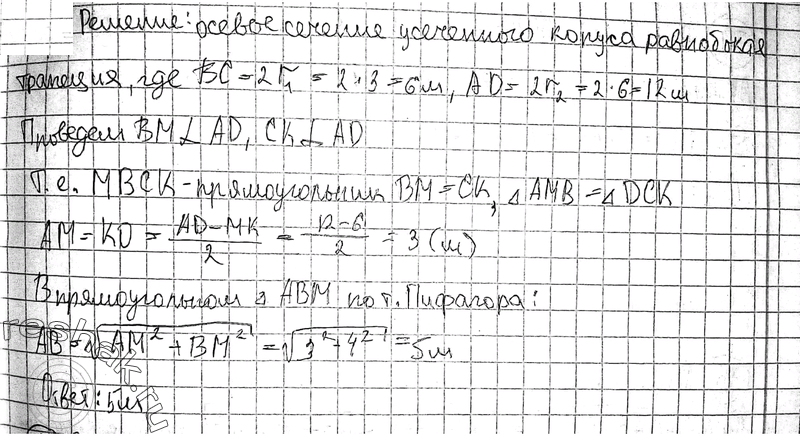 Решение: осевое сечение усеченного конуса равнобокая
трапеция, где BC = 2r₁ = 2·3 = 6м, AD = 2r₂ = 2·6 = 12м
Проведем BM ⊥ AD, CK ⊥ AD
Т.е. MBCK - прямоугольник BM = CK, △ AMB = △ DCK
AM = KD = (AD - MK)/2 = (12-6)/2 = 3 (м)
В прямоугольном △ ABM по т. Пифагора:
AB = √(AM² + BM²) = √(3² + 4²) = 5м
Ответ: 5м
reshak.ru